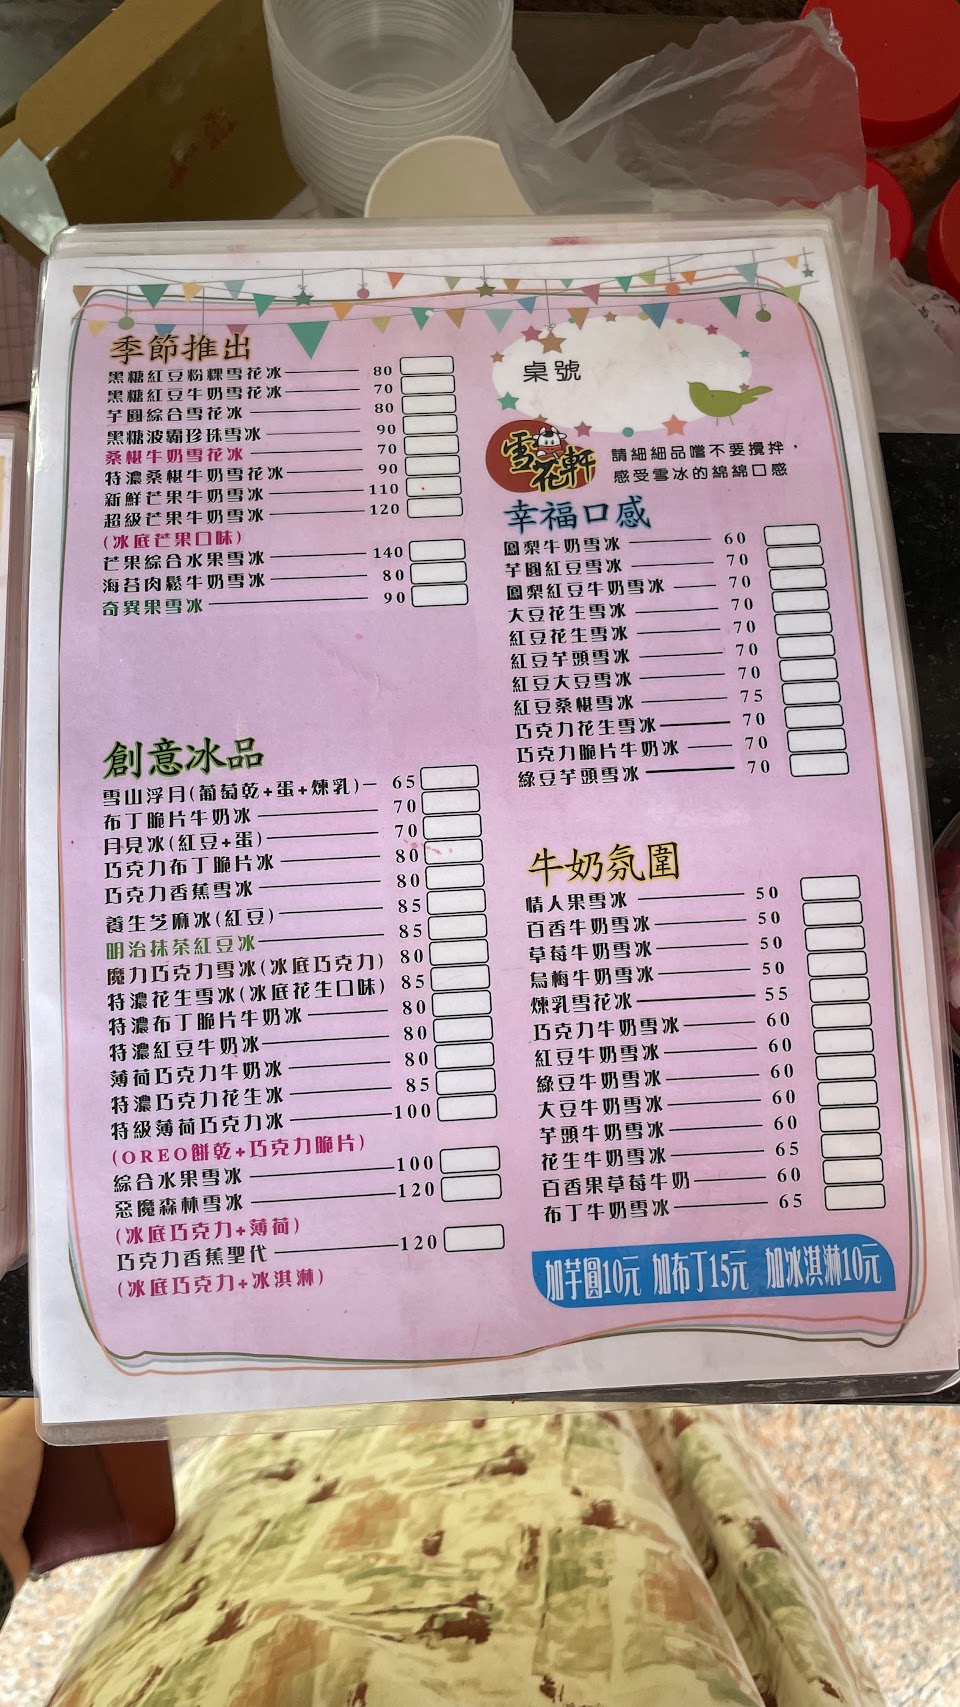 季節推出
黑糖紅豆粉粿雪花冰 80
黑糖紅豆牛奶雪花冰 70
芋圓綜合雪花冰 80
黑糖波霸珍珠雪冰 90
桑椹牛奶雪花冰 70
特濃桑椹牛奶雪花冰 90
新鮮芒果牛奶雪冰 110
超級芒果牛奶雪冰 120
(冰底芒果口味)
芒果綜合水果雪冰 140
海苔肉鬆牛奶雪冰 80
奇異果雪冰 90
創意冰品
雪山浮月(葡萄乾+蛋+煉乳) 65
布丁脆片牛奶冰 70
月見冰(紅豆+蛋) 70
巧克力布丁脆片冰 80
巧克力香蕉雪冰 80
養生芝麻冰(紅豆) 85
明治抹茶紅豆冰 85
魔力巧克力雪冰(冰底巧克力) 80
特濃花生雪冰(冰底花生口味) 85
特濃布丁脆片牛奶冰 80
特濃紅豆牛奶冰 80
薄荷巧克力牛奶冰 80
特濃巧克力花生冰 85
特級薄荷巧克力冰 100
(OREO餅乾+巧克力脆片)
綜合水果雪冰 100
惡魔森林雪冰 120
(冰底巧克力+薄荷)
巧克力香蕉聖代 120
(冰底巧克力+冰淇淋)
桌號
雪花軒
請細細品嚐不要攪拌，
感受雪冰的綿綿口感
幸福口感
鳳梨牛奶雪冰 60
芋圓紅豆雪冰 70
鳳梨紅豆牛奶雪冰 70
大豆花生雪冰 70
紅豆花生雪冰 70
紅豆芋頭雪冰 70
紅豆大豆雪冰 70
紅豆桑椹雪冰 75
巧克力花生雪冰 70
巧克力脆片牛奶冰 70
綠豆芋頭雪冰 70
牛奶氛圍
情人果雪冰 50
百香牛奶雪冰 50
草莓牛奶雪冰 50
烏梅牛奶雪冰 50
煉乳雪花冰 55
巧克力牛奶雪冰 60
紅豆牛奶雪冰 60
綠豆牛奶雪冰 60
大豆牛奶雪冰 60
芋頭牛奶雪冰 60
花生牛奶雪冰 65
百香果草莓牛奶 60
布丁牛奶雪冰 65
加芋圓10元 加布丁15元 加冰淇淋10元